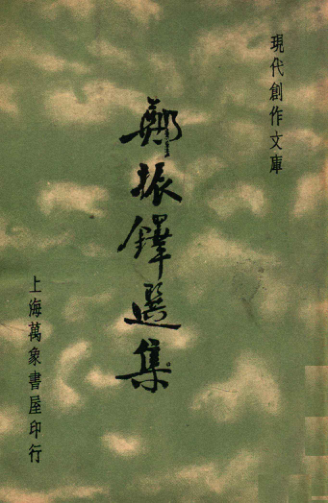 現代創作文庫
鄭振鐸選集
上海萬象書屋印行